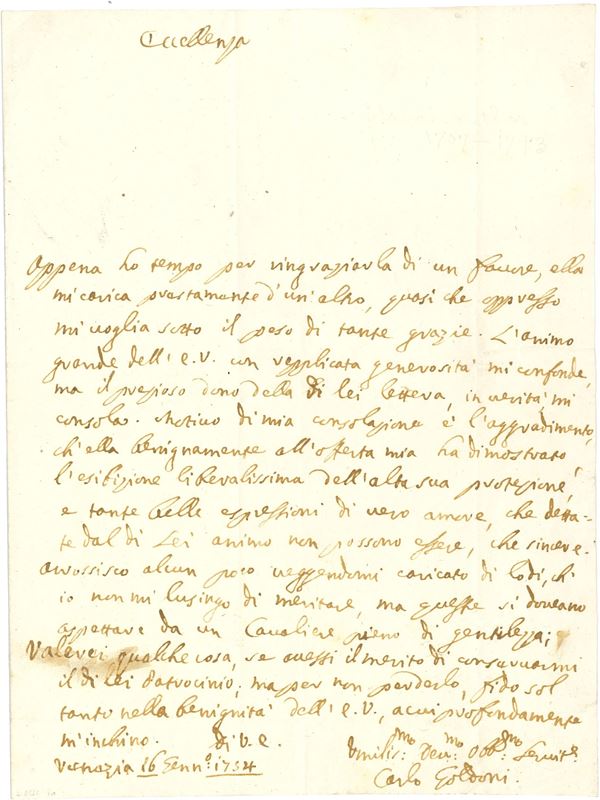 Eccellenza
Appena ho tempo per ringraziarla di un favore, ella
mi carica prestamente d'un altro, quasi che oppresso
mi voglia sotto il peso di tante grazie. L'animo
grande dell'E.V. con replicata generosità mi confonde,
ma il prezioso dono della di lei lettera, in verità mi
consola. Motivo di mia consolazione è l'aggradimento,
ch'ella benignamente all'offerta mia ha dimostrato,
l'esibizione liberalissima dell'alta sua protezione,
e tante belle espressioni di vero amore, che detta-
te dal di Lei animo non possono essere, che sincere.
Arrossisco alcun poco veggendomi caricato di lodi, ch'
io non mi lusingo di meritare, ma queste si doveano
aspettare da un Cavaliere pieno di gentilezza;
Valerei qualche cosa, se avessi il merito di conservarmi
il di lei Patrocinio; ma per non perderlo, fido sol
tanto nella benignità dell'E.V., a cui profondamente
m'inchino. Di V.E.
Venezia 16 Genn.º 1754
Umilis:mo Dev:mo Obb:mo Servit.e
Carlo Goldoni.